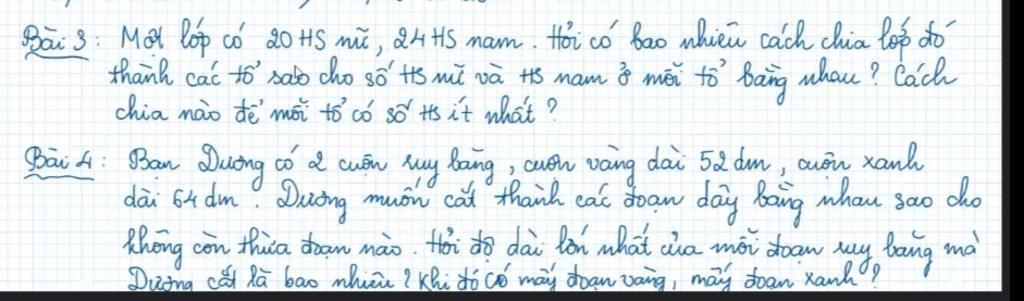 Bài 3: Một lớp có 20 HS nữ, 24 HS nam. Hỏi có bao nhiêu cách chia lớp đó
thành các tổ sao cho số HS nữ và HS nam ở mỗi tổ bằng nhau? Cách
chia nào để mỗi tổ có số HS ít nhất?
Bài 4: Bạn Dương có 2 cuộn ruy băng, cuộn vàng dài 52 dm, cuộn xanh
dài 64 dm. Dương muốn cắt thành các đoạn dây bằng nhau sao cho
không còn thừa đoạn nào. Hỏi độ dài lớn nhất của mỗi đoạn ruy băng mà
Dương cắt là bao nhiêu? Khi đó có mấy đoạn vàng, mấy đoạn xanh?